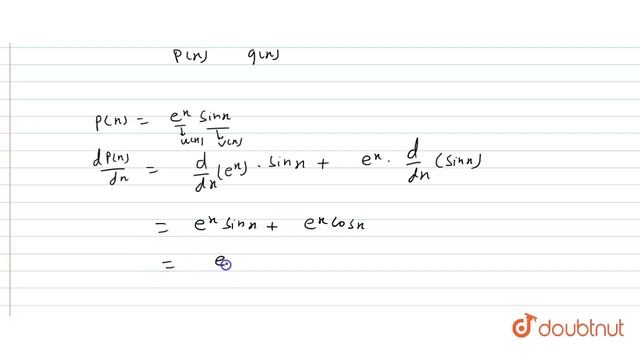 P(x) q(x)
P(x) = eˣ sinx
↓ u(x) ↓ v(x)
dP(x)/dx = d/dx (eˣ) · sinx + eˣ · d/dx (sinx)
= eˣ sinx + eˣ cosx
= e
doubtnut